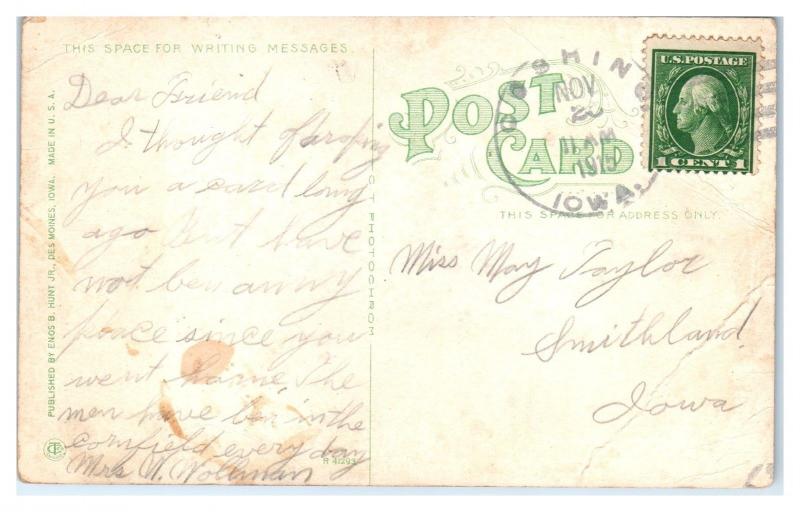 THIS SPACE FOR WRITING MESSAGES.
Dear Friend
I thought of droping
you a card long
ago But have
not ben away
place since you
went home, The
men have ben in the
cornfield every day
Mrs W. Wollman
PUBLISHED BY ENOS B. HUNT JR., DES MOINES, IOWA. MADE IN U.S.A.
C T PHOTOCHROM
R 41293
POST CARD
NOV
11 AM
1915
IOWA.
U.S. POSTAGE
1 CENT 1
THIS SPACE FOR ADDRESS ONLY.
Miss May Taylor
Smithland
Iowa